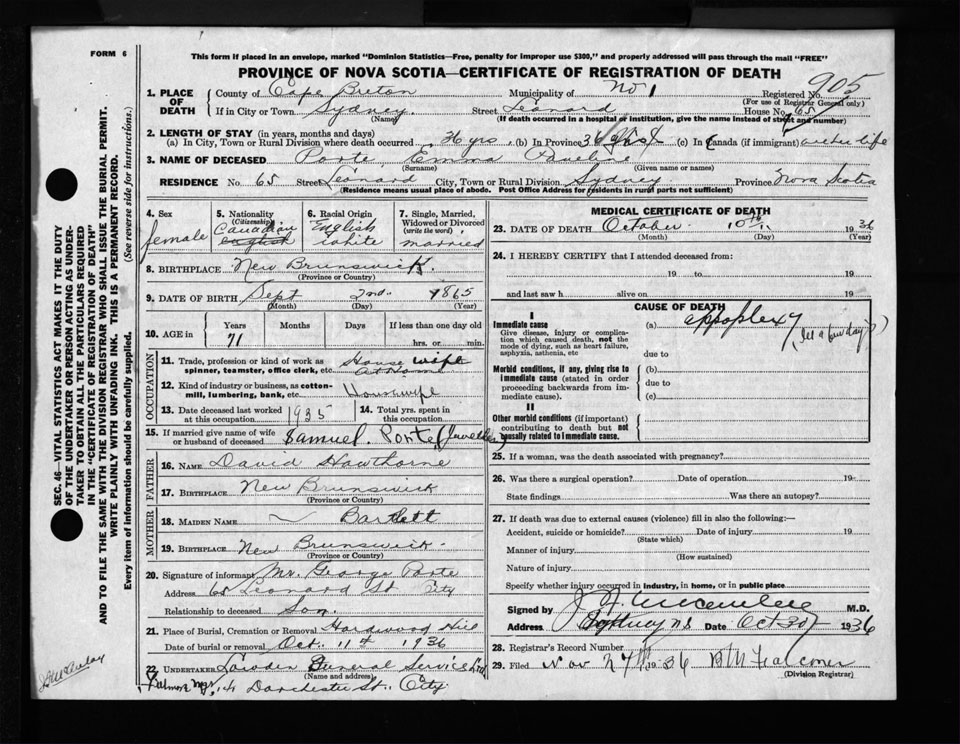 FORM 6
This form if placed in an envelope, marked "Dominion Statistics—Free, penalty for improper use $300," and properly addressed will pass through the mail "FREE"
PROVINCE OF NOVA SCOTIA—CERTIFICATE OF REGISTRATION OF DEATH
SEC. 46—VITAL STATISTICS ACT MAKES IT THE DUTY
OF THE UNDERTAKER OR PERSON ACTING AS UNDER-
TAKER TO OBTAIN ALL THE PARTICULARS REQUIRED
IN THE "CERTIFICATE OF REGISTRATION OF DEATH"
AND TO FILE THE SAME WITH THE DIVISION REGISTRAR WHO SHALL ISSUE THE BURIAL PERMIT.
WRITE PLAINLY WITH UNFADING INK. THIS IS A PERMANENT RECORD.
Every item of information should be carefully supplied. (See reverse side for instructions.)
1. PLACE OF DEATH County of Cape Breton Municipality of No 1 Registered No. 905
(For use of Registrar General only)
If in City or Town Sydney Street Leonard House No. 65
(Name) (If death occurred in a hospital or institution, give the name instead of street and number)
2. LENGTH OF STAY (in years, months and days)
(a) In City, Town or Rural Division where death occurred 36 yrs (b) In Province (c) In Canada (if immigrant) entire life
3. NAME OF DECEASED Porte Emma Pauline
(Surname) (Given name or names)
RESIDENCE No. 65 Street Leonard City, Town or Rural Division Sydney Province Nova Scotia
(Residence means usual place of abode. Post Office Address for residents in rural parts not sufficient)
4. Sex
female
5. Nationality
(Citizenship)
Canadian
english
6. Racial Origin
English
white
7. Single, Married,
Widowed or Divorced
(write the word)
married
8. BIRTHPLACE New Brunswick
(Province or Country)
9. DATE OF BIRTH Sept 2nd. 1865
(Month) (Day) (Year)
10. AGE in Years Months Days If less than one day old
71 hrs. or min.
OCCUPATION
11. Trade, profession or kind of work as House wife
spinner, teamster, office clerk, etc. at Home
12. Kind of industry or business, as cotton-
mill, lumbering, bank, etc. Housewife
13. Date deceased last worked
at this occupation 1935
14. Total yrs. spent in
this occupation
15. If married give name of wife
or husband of deceased Samuel Porte (Jeweller)
FATHER
16. Name David Hawthorne
17. Birthplace New Brunswick
MOTHER
18. Maiden Name Bartlett
19. Birthplace New Brunswick
(Province or Country)
20. Signature of informant Mr. George Porte
Address 65 Leonard St City
Relationship to deceased Son.
21. Place of Burial, Cremation or Removal Hardwood Hill
Date of burial or removal Oct. 11th 1936
22. Undertaker General Service Ltd
(Name and address)
Dorchester St. City
MEDICAL CERTIFICATE OF DEATH
23. DATE OF DEATH October 10th 1936
(Month) (Day) (Year)
24. I HEREBY CERTIFY that I attended deceased from:
19 to 19
and last saw h alive on 19
CAUSE OF DEATH
I
Immediate cause
Give disease, injury or complica-
tion which caused death, not the
mode of dying, such as heart failure,
asphyxia, asthenia, etc
(a) appoplexy
due to
Morbid conditions, if any, giving rise to
immediate cause (stated in order
proceeding backwards from im-
mediate cause).
(b)
due to
(c)
II
Other morbid conditions (if important)
contributing to death but not
causally related to immediate cause.
25. If a woman, was the death associated with pregnancy?
26. Was there a surgical operation? Date of operation 19
State findings Was there an autopsy?
27. If death was due to external causes (violence) fill in also the following:—
Accident, suicide or homicide? Date of injury 19
(State which)
Manner of injury
(How sustained)
Nature of injury
Specify whether injury occurred in industry, in home, or in public place
Signed by M.D.
Address Sydney N S Date Oct 30 1936
28. Registrar's Record Number
29. Filed Nov 27th 1936
(Division Registrar)